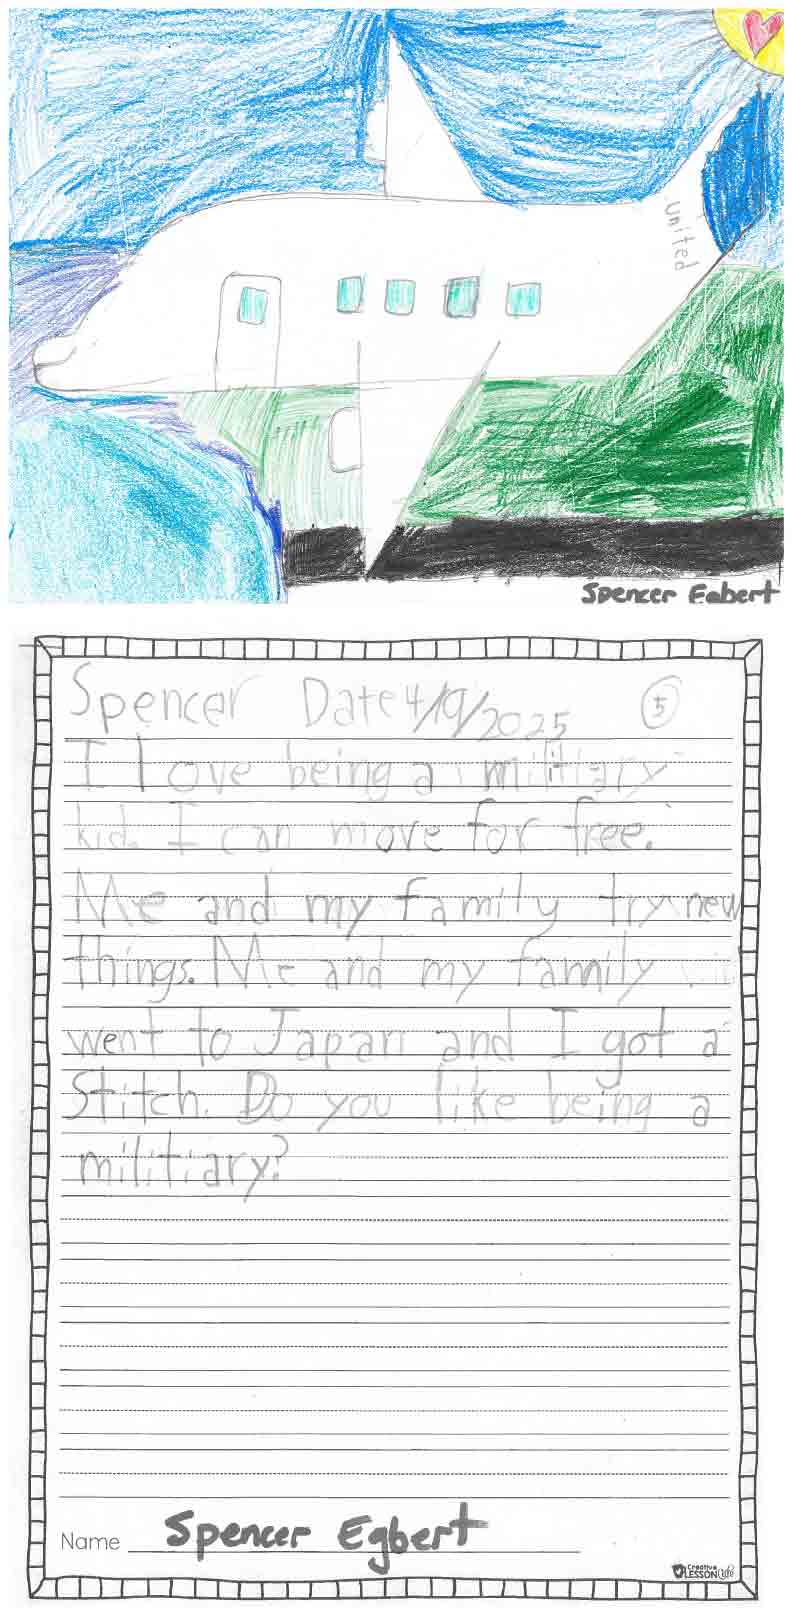 United
Spencer Egbert
Spencer Date 4/19/2025 5
I love being a military
kid. I can move for free.
Me and my family try new
things. Me and my family
went to Japan and I got a
Stitch. Do you like being a
military?
Name Spencer Egbert
Creative
LESSON Cafe